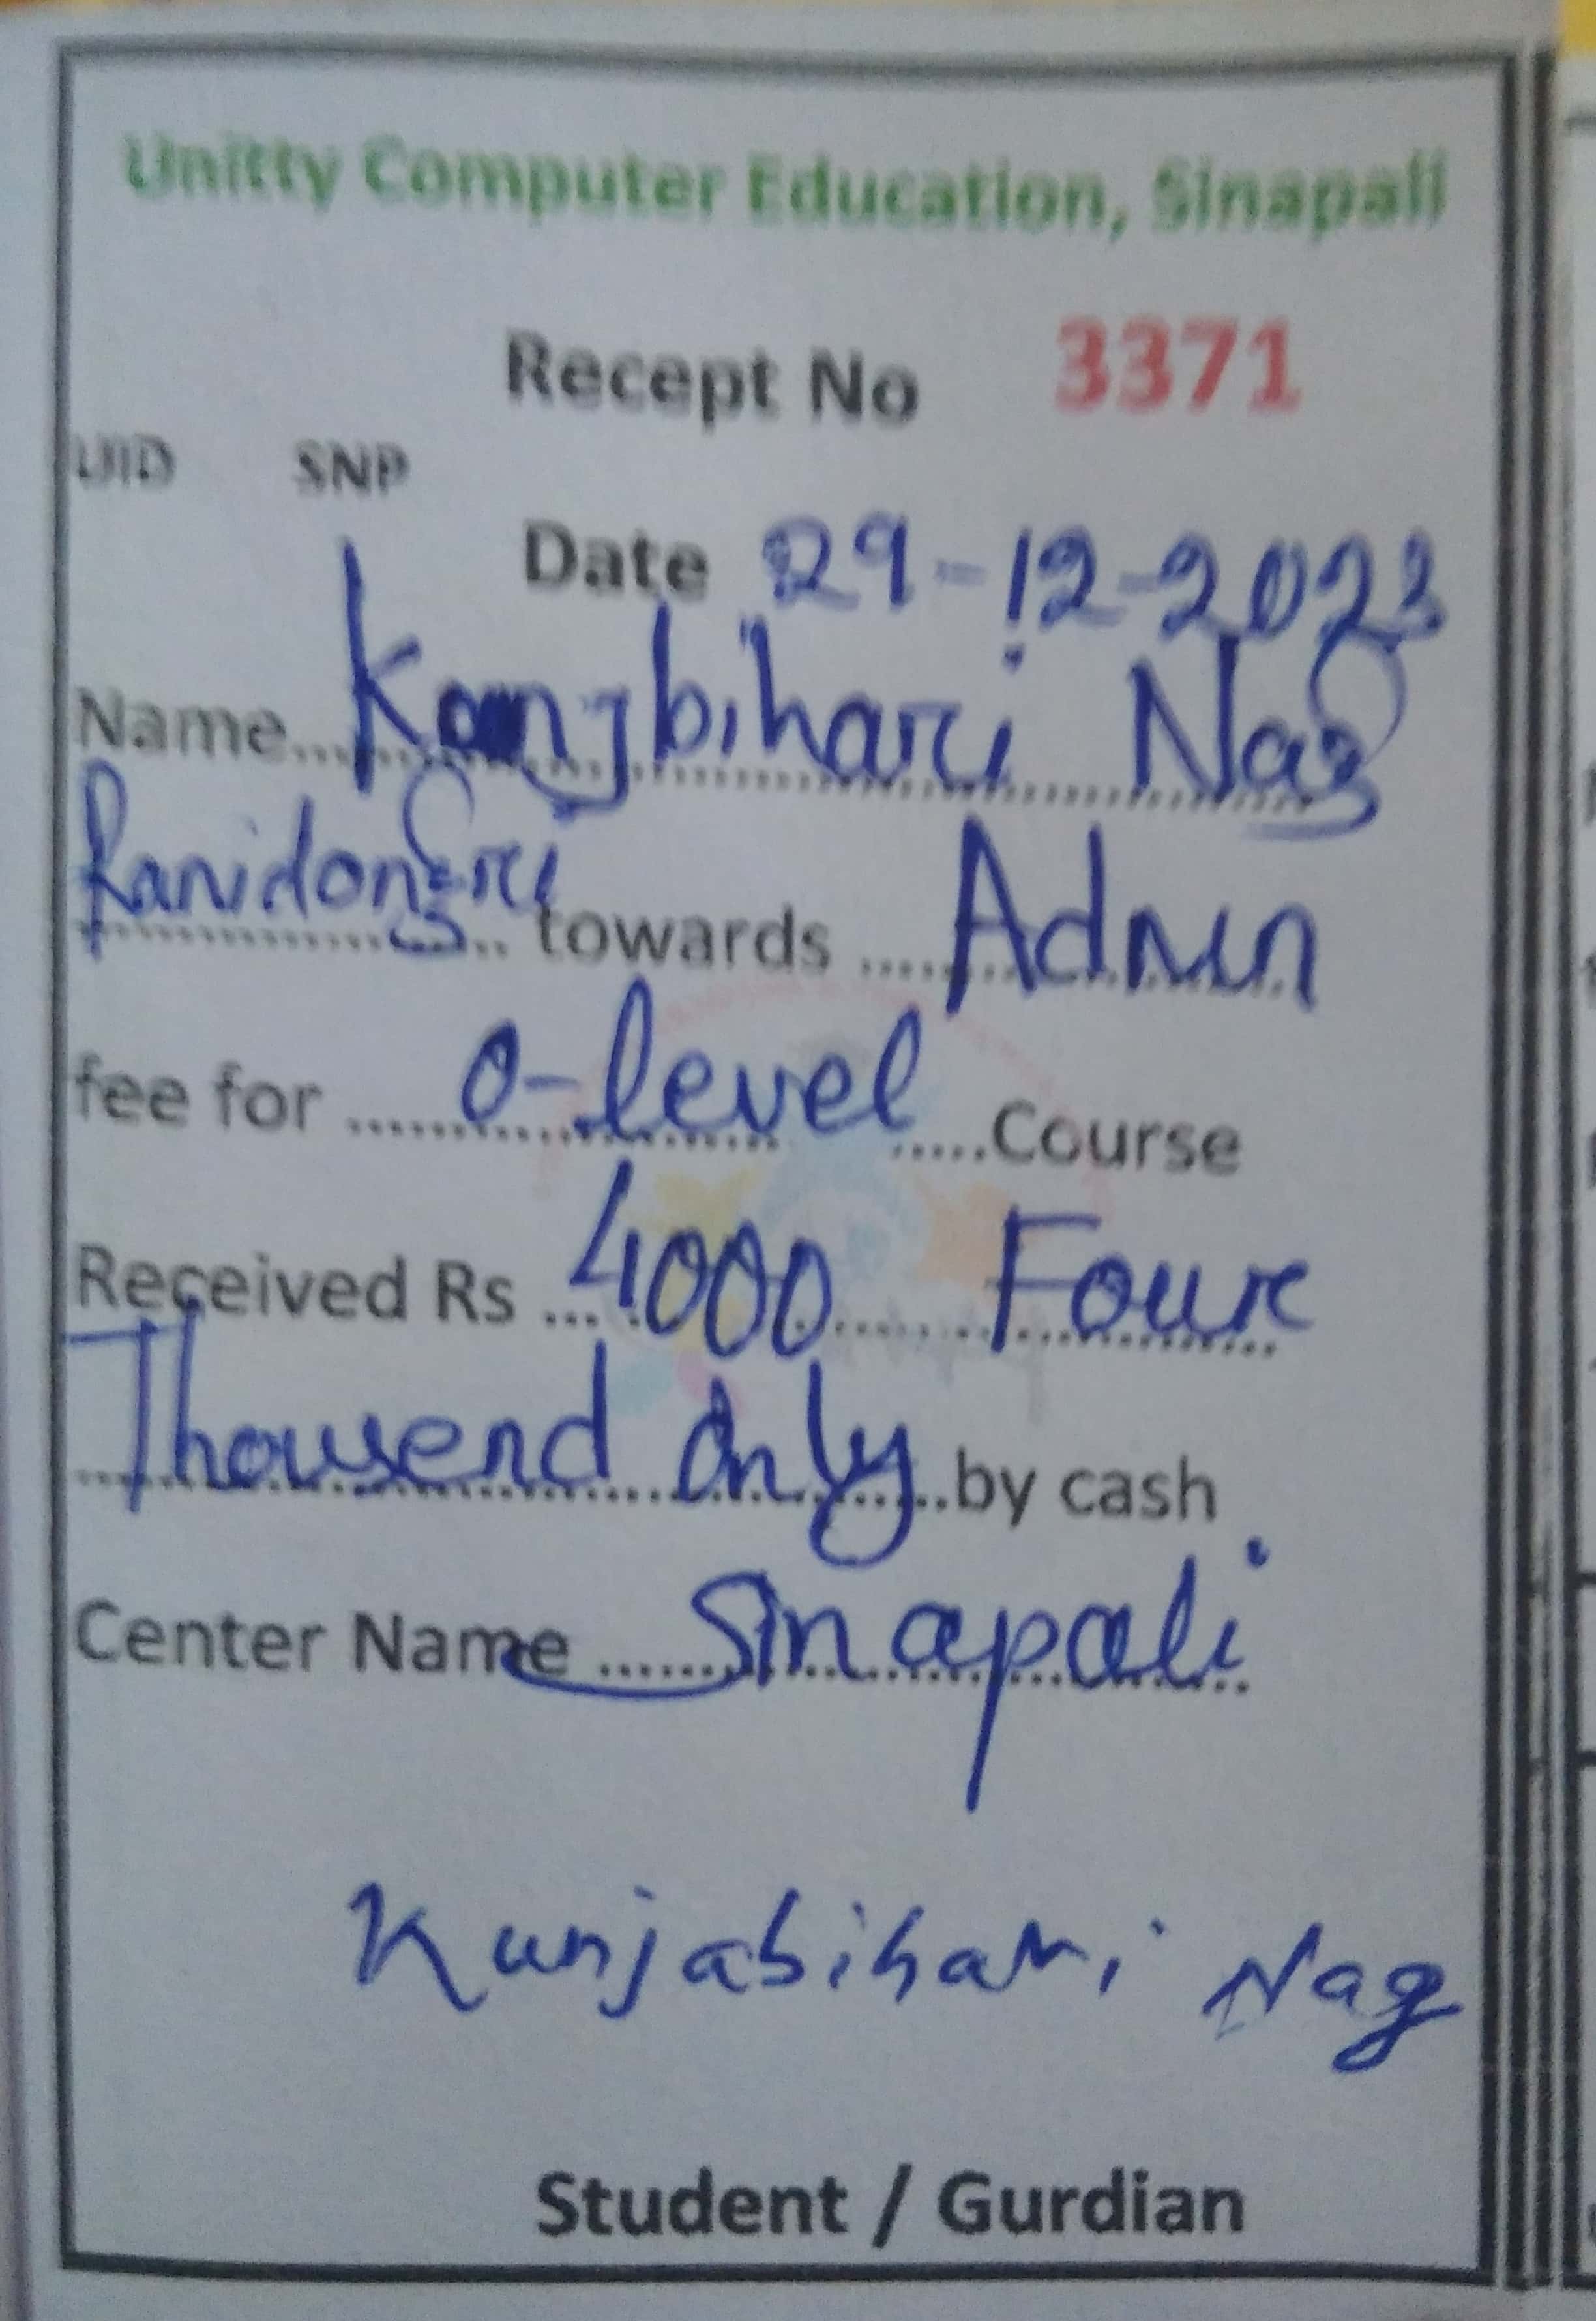 Unitty Computer Education, Sinapali
Recept No 3371
UID SNP
Date 29-12-2023
Name.... Kanjbihari Nag
Ranidongri towards .... Admn
fee for .... O-level ....Course
Received Rs ... 4000 .... Four
Thousend Only ...by cash
Center Name .... Sinapali
Kunjabihari Nag
Student / Gurdian